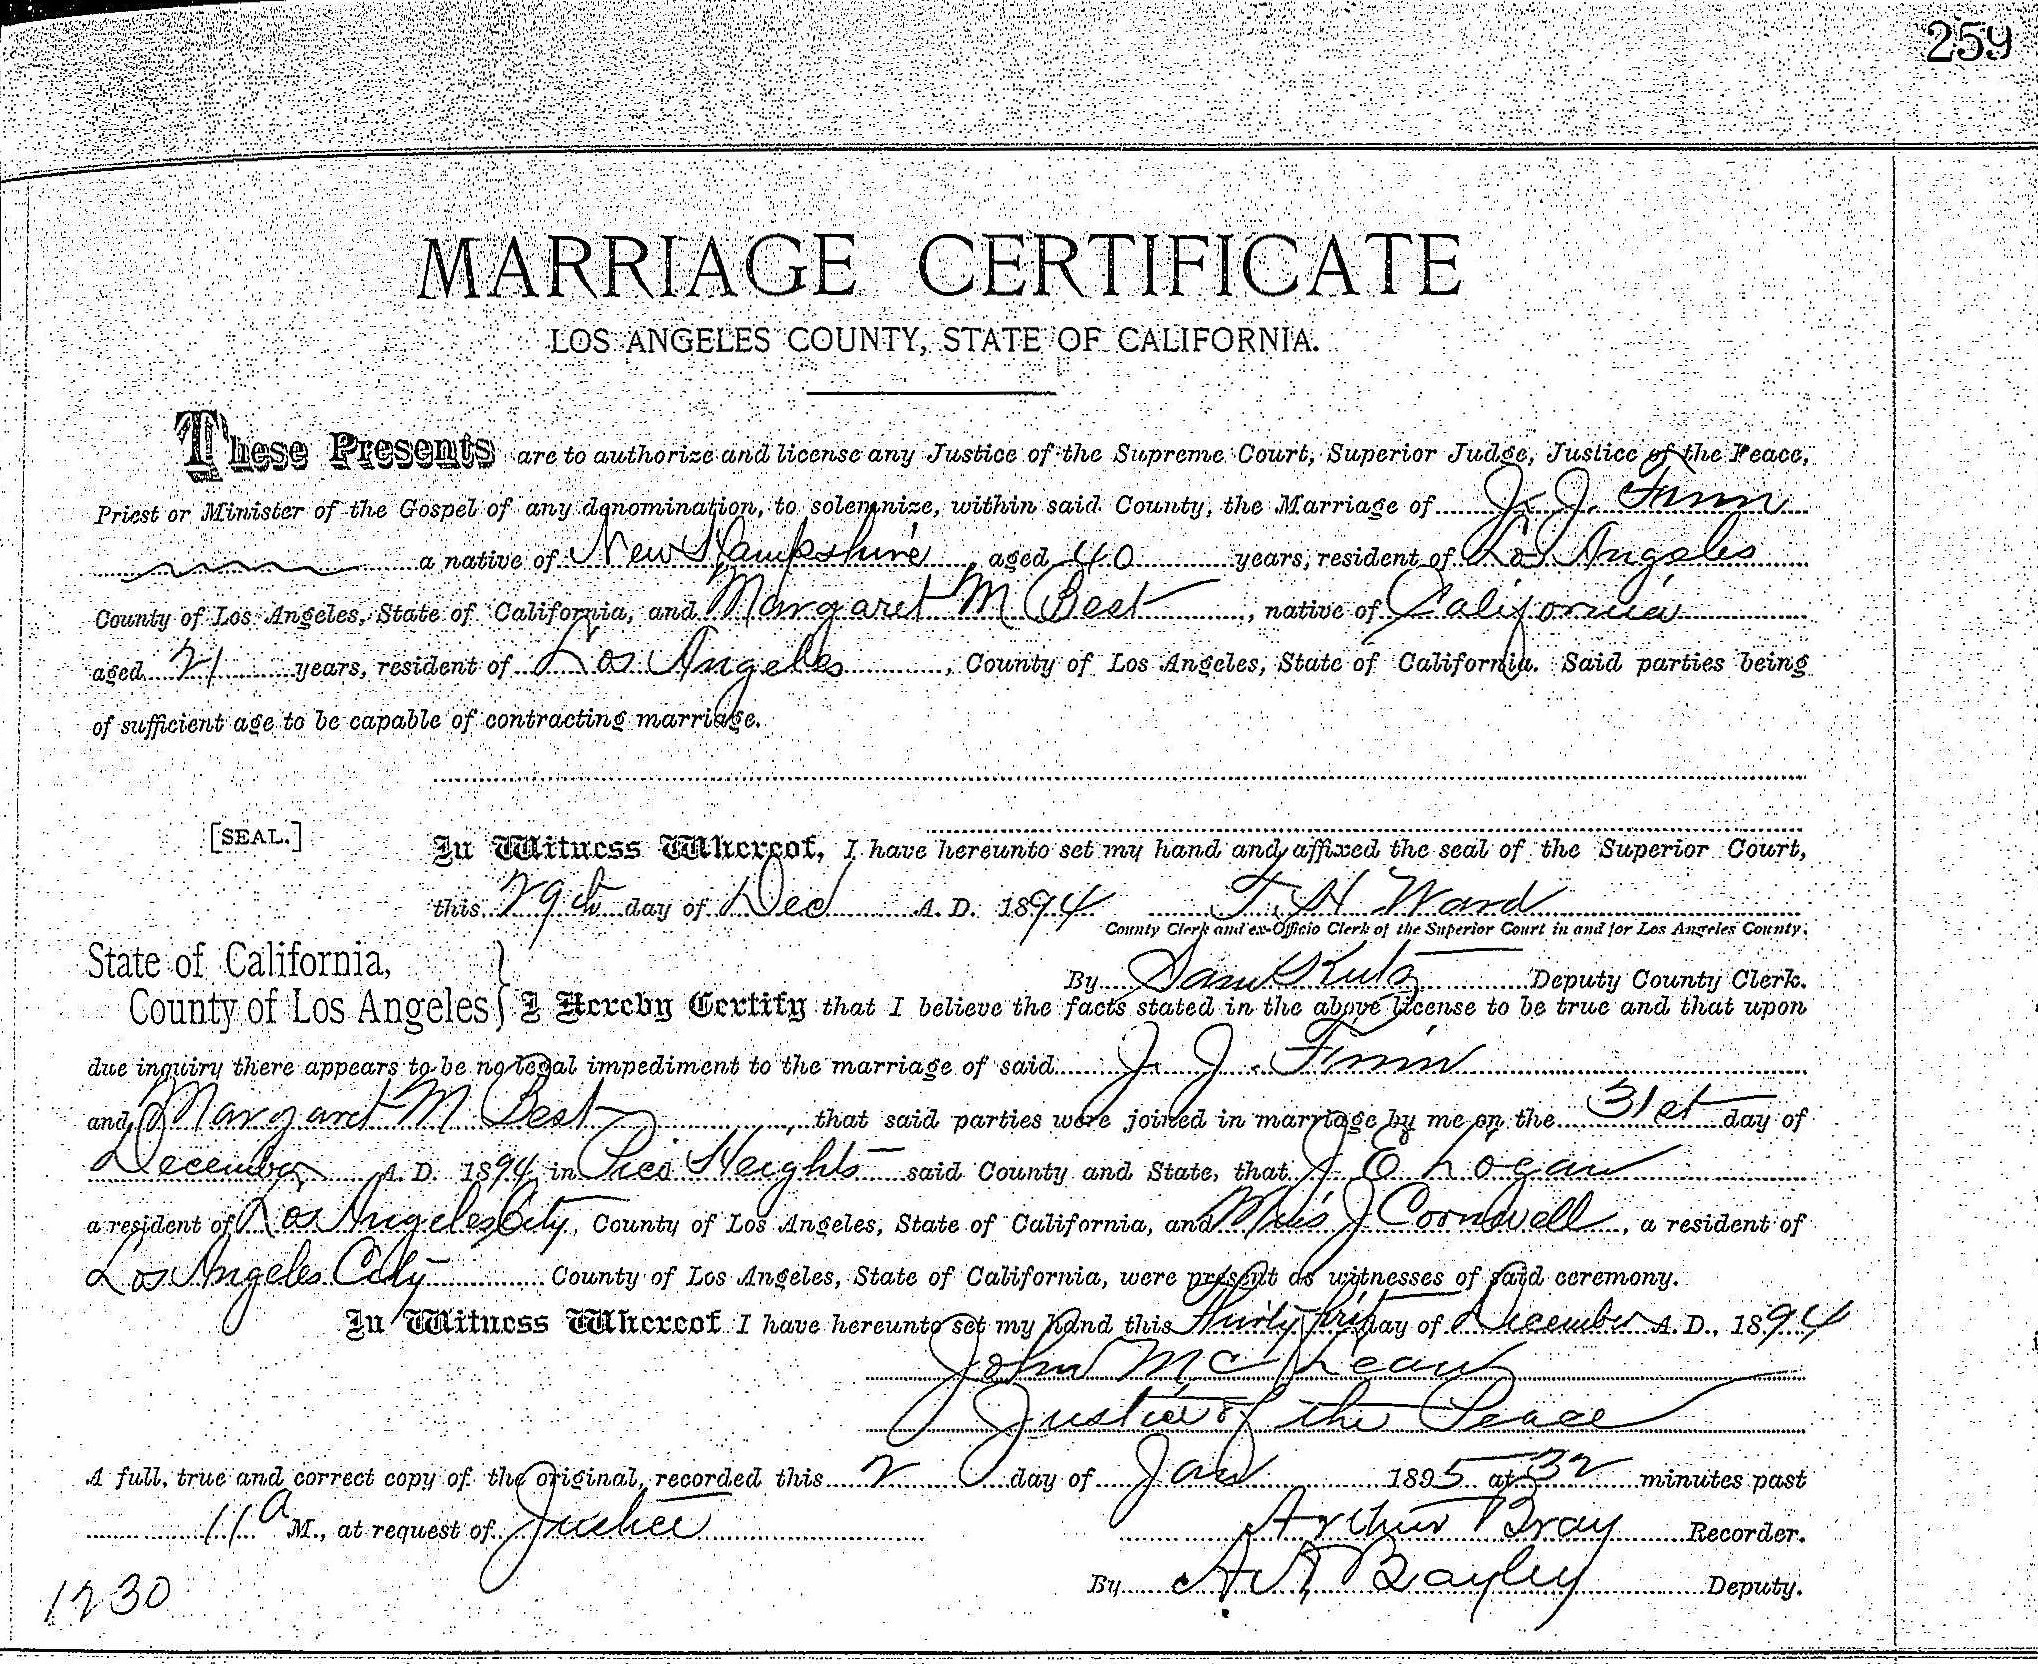 259
MARRIAGE CERTIFICATE
LOS ANGELES COUNTY, STATE OF CALIFORNIA.
These Presents are to authorize and license any Justice of the Supreme Court, Superior Judge, Justice of the Peace,
Priest or Minister of the Gospel of any denomination, to solemnize, within said County, the Marriage of J. J.
a native of New Hampshire aged 40 years, resident of Los Angeles
County of Los Angeles, State of California, and Margaret M Best, native of California
aged 21 years, resident of Los Angeles, County of Los Angeles, State of California. Said parties being
of sufficient age to be capable of contracting marriage.
[SEAL.]
In Witness Whereof, I have hereunto set my hand and affixed the seal of the Superior Court,
this 29th day of Dec A. D. 1894 T. H Ward
County Clerk and ex-Officio Clerk of the Superior Court in and for Los Angeles County.
State of California,
By Sam Kutz Deputy County Clerk.
County of Los Angeles } I Hereby Certify that I believe the facts stated in the above license to be true and that upon
due inquiry there appears to be no legal impediment to the marriage of said J. J.
and Margaret M Best, that said parties were joined in marriage by me on the 31st day of
December A. D. 1894 in Pico Heights said County and State, that J E Logan
a resident of Los Angeles City, County of Los Angeles, State of California, and J Cornwell, a resident of
Los Angeles City County of Los Angeles, State of California, were present as witnesses of said ceremony.
In Witness Whereof I have hereunto set my hand this Thirty first day of December A. D., 1894
John McLean
Justice of the Peace
A full, true and correct copy of the original, recorded this 2 day of Jan 1895 at 32 minutes past
11 a M., at request of Justice Arthur Bray Recorder.
By Bayley Deputy.
1230